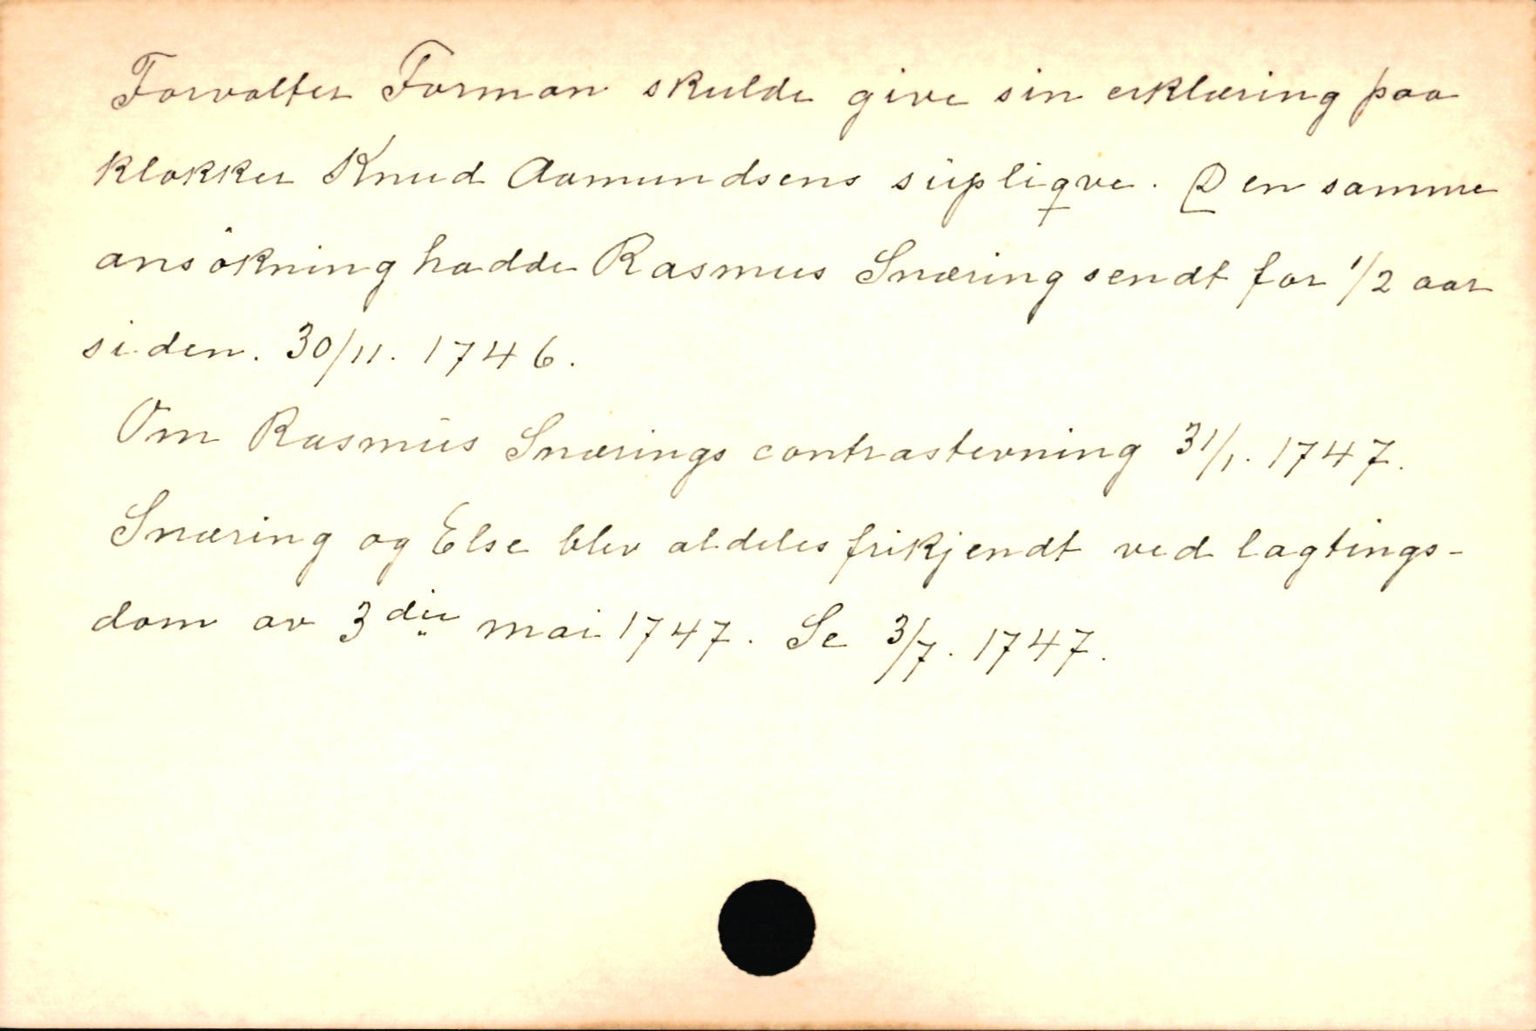 Forvalter Forman skulde give sin erklæring paa
klokker Knud Aamundsens supliqve. Den samme
ansökning hadde Rasmus Snæring sendt for 1/2 aar
siden. 30/11. 1746.
Om Rasmus Snærings contrastevning 31/1. 1747.
Snæring og Else blev aldeles frikjendt ved lagtings-
dom av 3die mai 1747. Se 3/7. 1747.